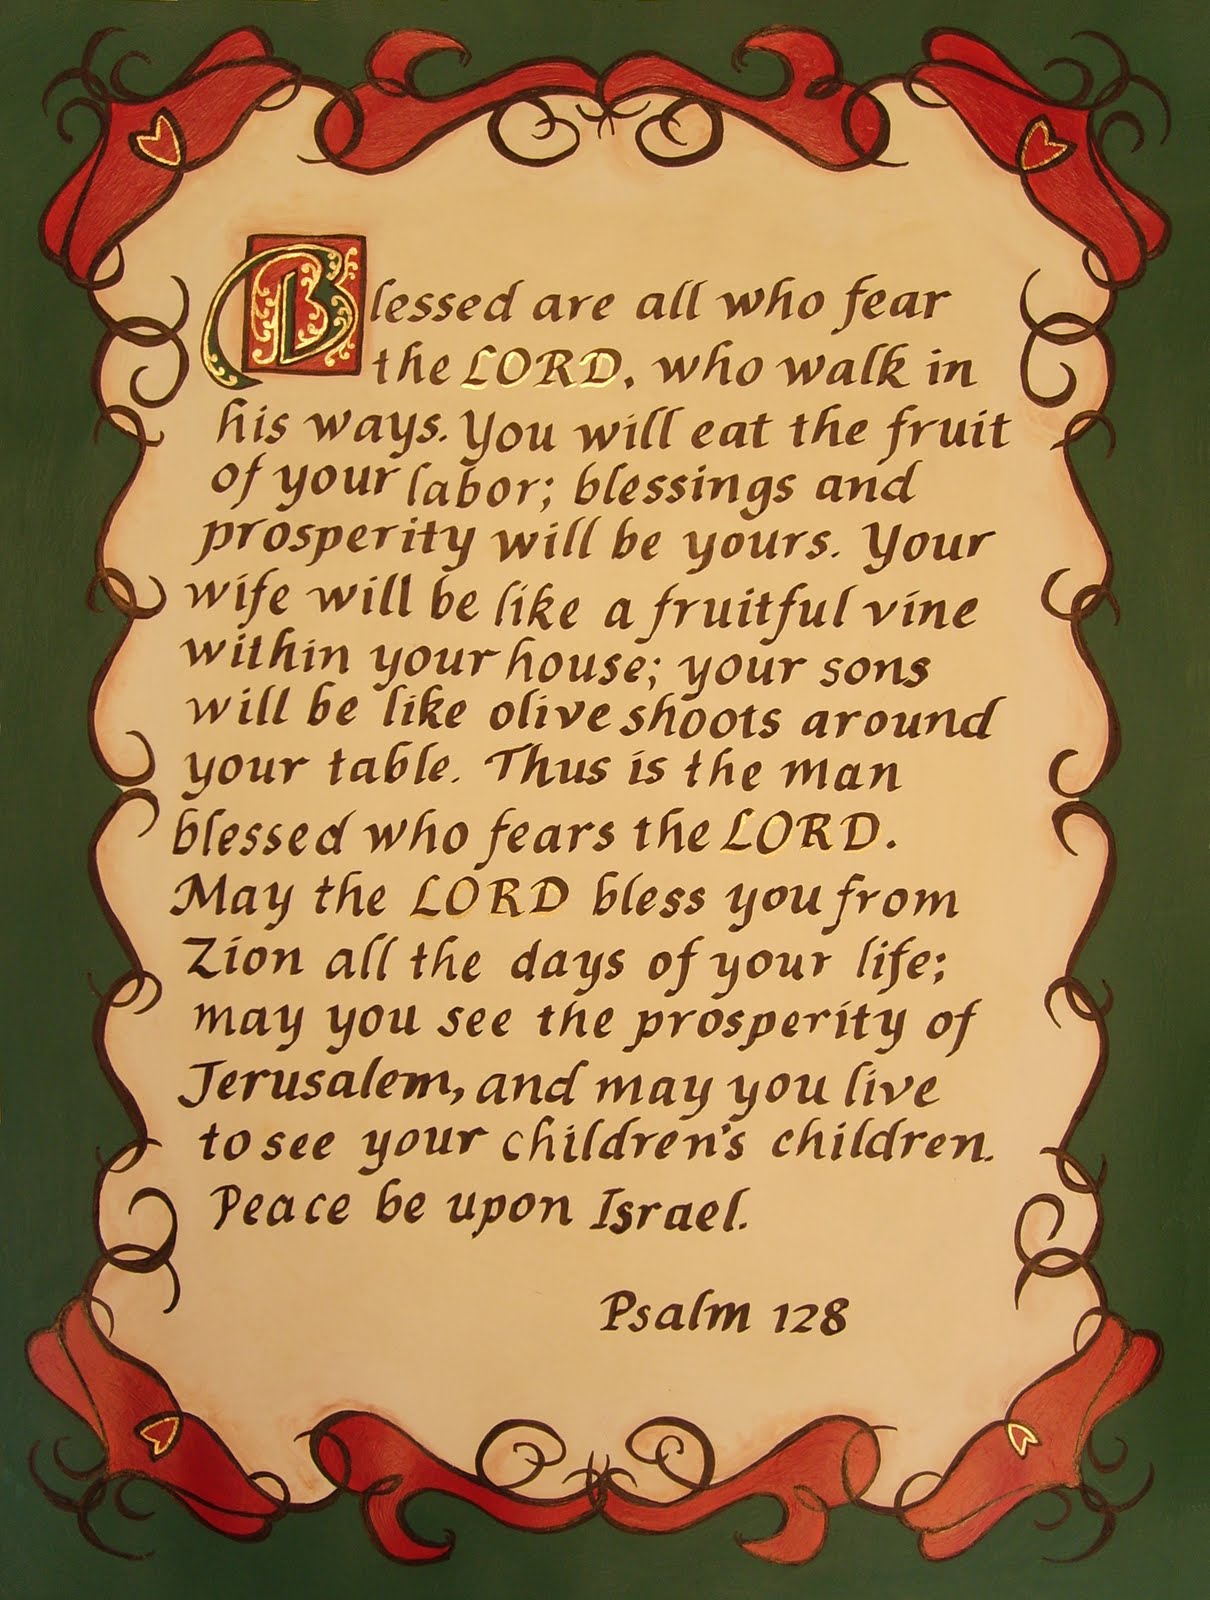 Blessed are all who fear
the LORD, who walk in
his ways. You will eat the fruit
of your labor; blessings and
prosperity will be yours. Your
wife will be like a fruitful vine
within your house; your sons
will be like olive shoots around
your table. Thus is the man
blessed who fears the LORD.
May the LORD bless you from
Zion all the days of your life;
may you see the prosperity of
Jerusalem, and may you live
to see your children's children.
Peace be upon Israel.
Psalm 128